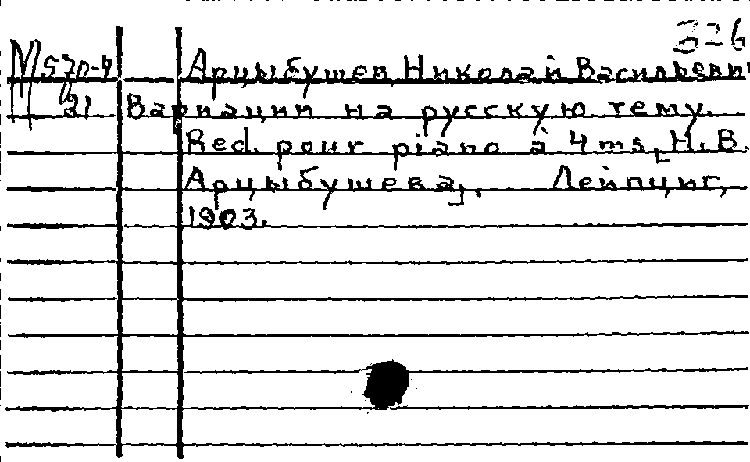 326
М 570-4 Арцыбушев, Николай Васильевич
21 Вариации на русскую тему.
Red. pour piano à 4 ms. [Н. В.
Арцыбушева]. Лейпциг,
1903.